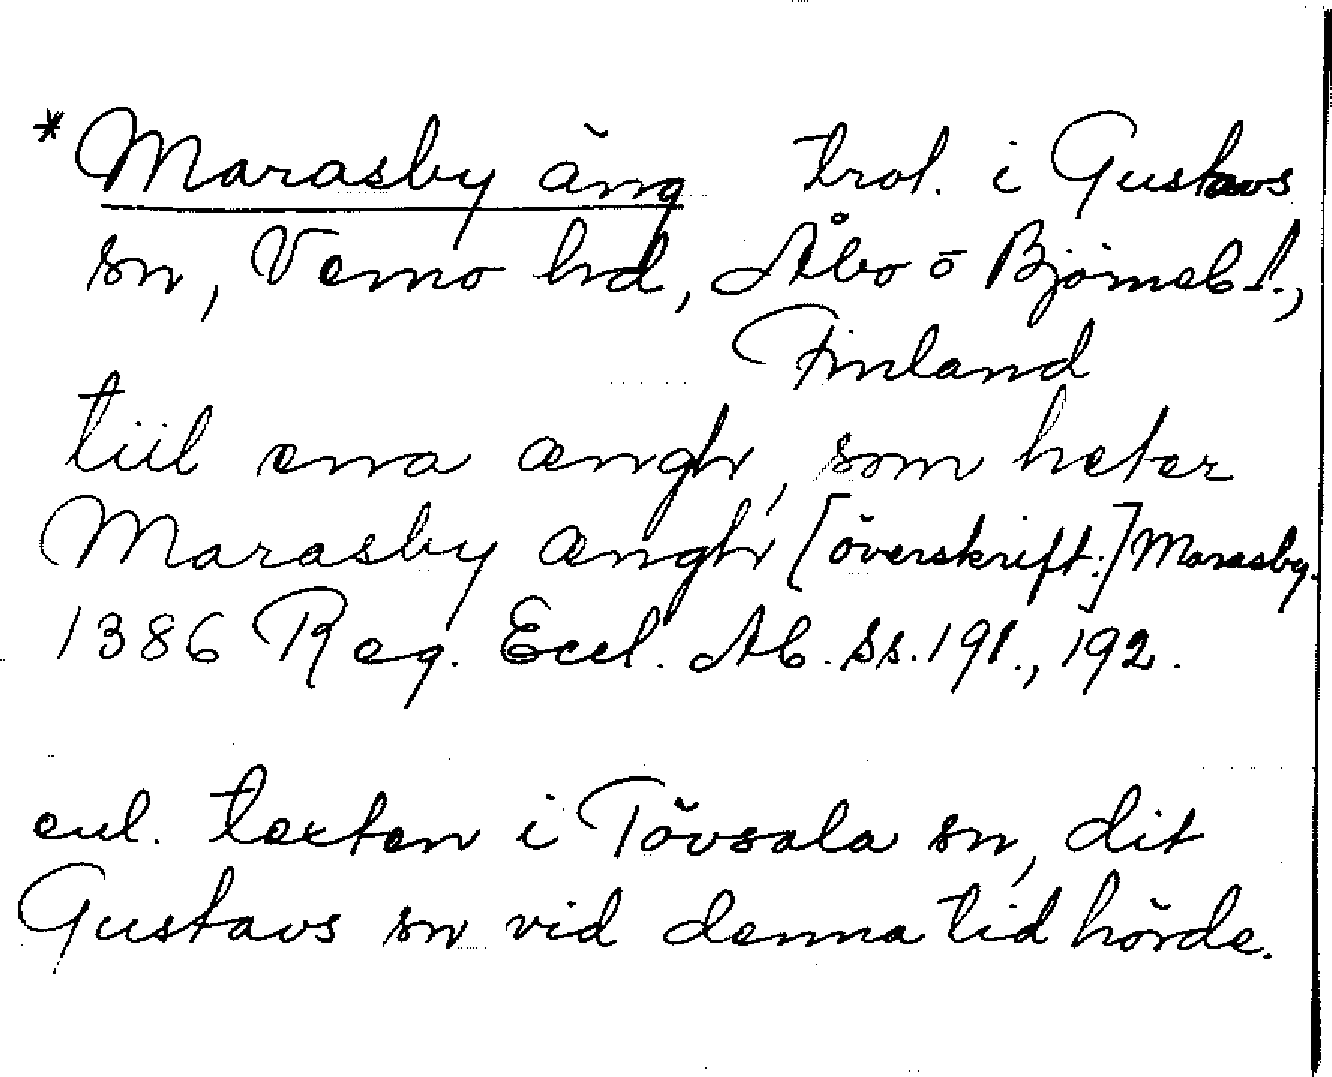 *Marasby äng trol. i Gustavs
sn, Vemo hd, Åbo o Björneb l.,
Finland
tiil ena ængh, som heter
Marasby ængh [överskrift:] Marasby.
1386 Reg. Eccl. Ab. ss. 191., 192.
enl. texten i Tövsala sn, dit
Gustavs sn vid denna tid hörde.